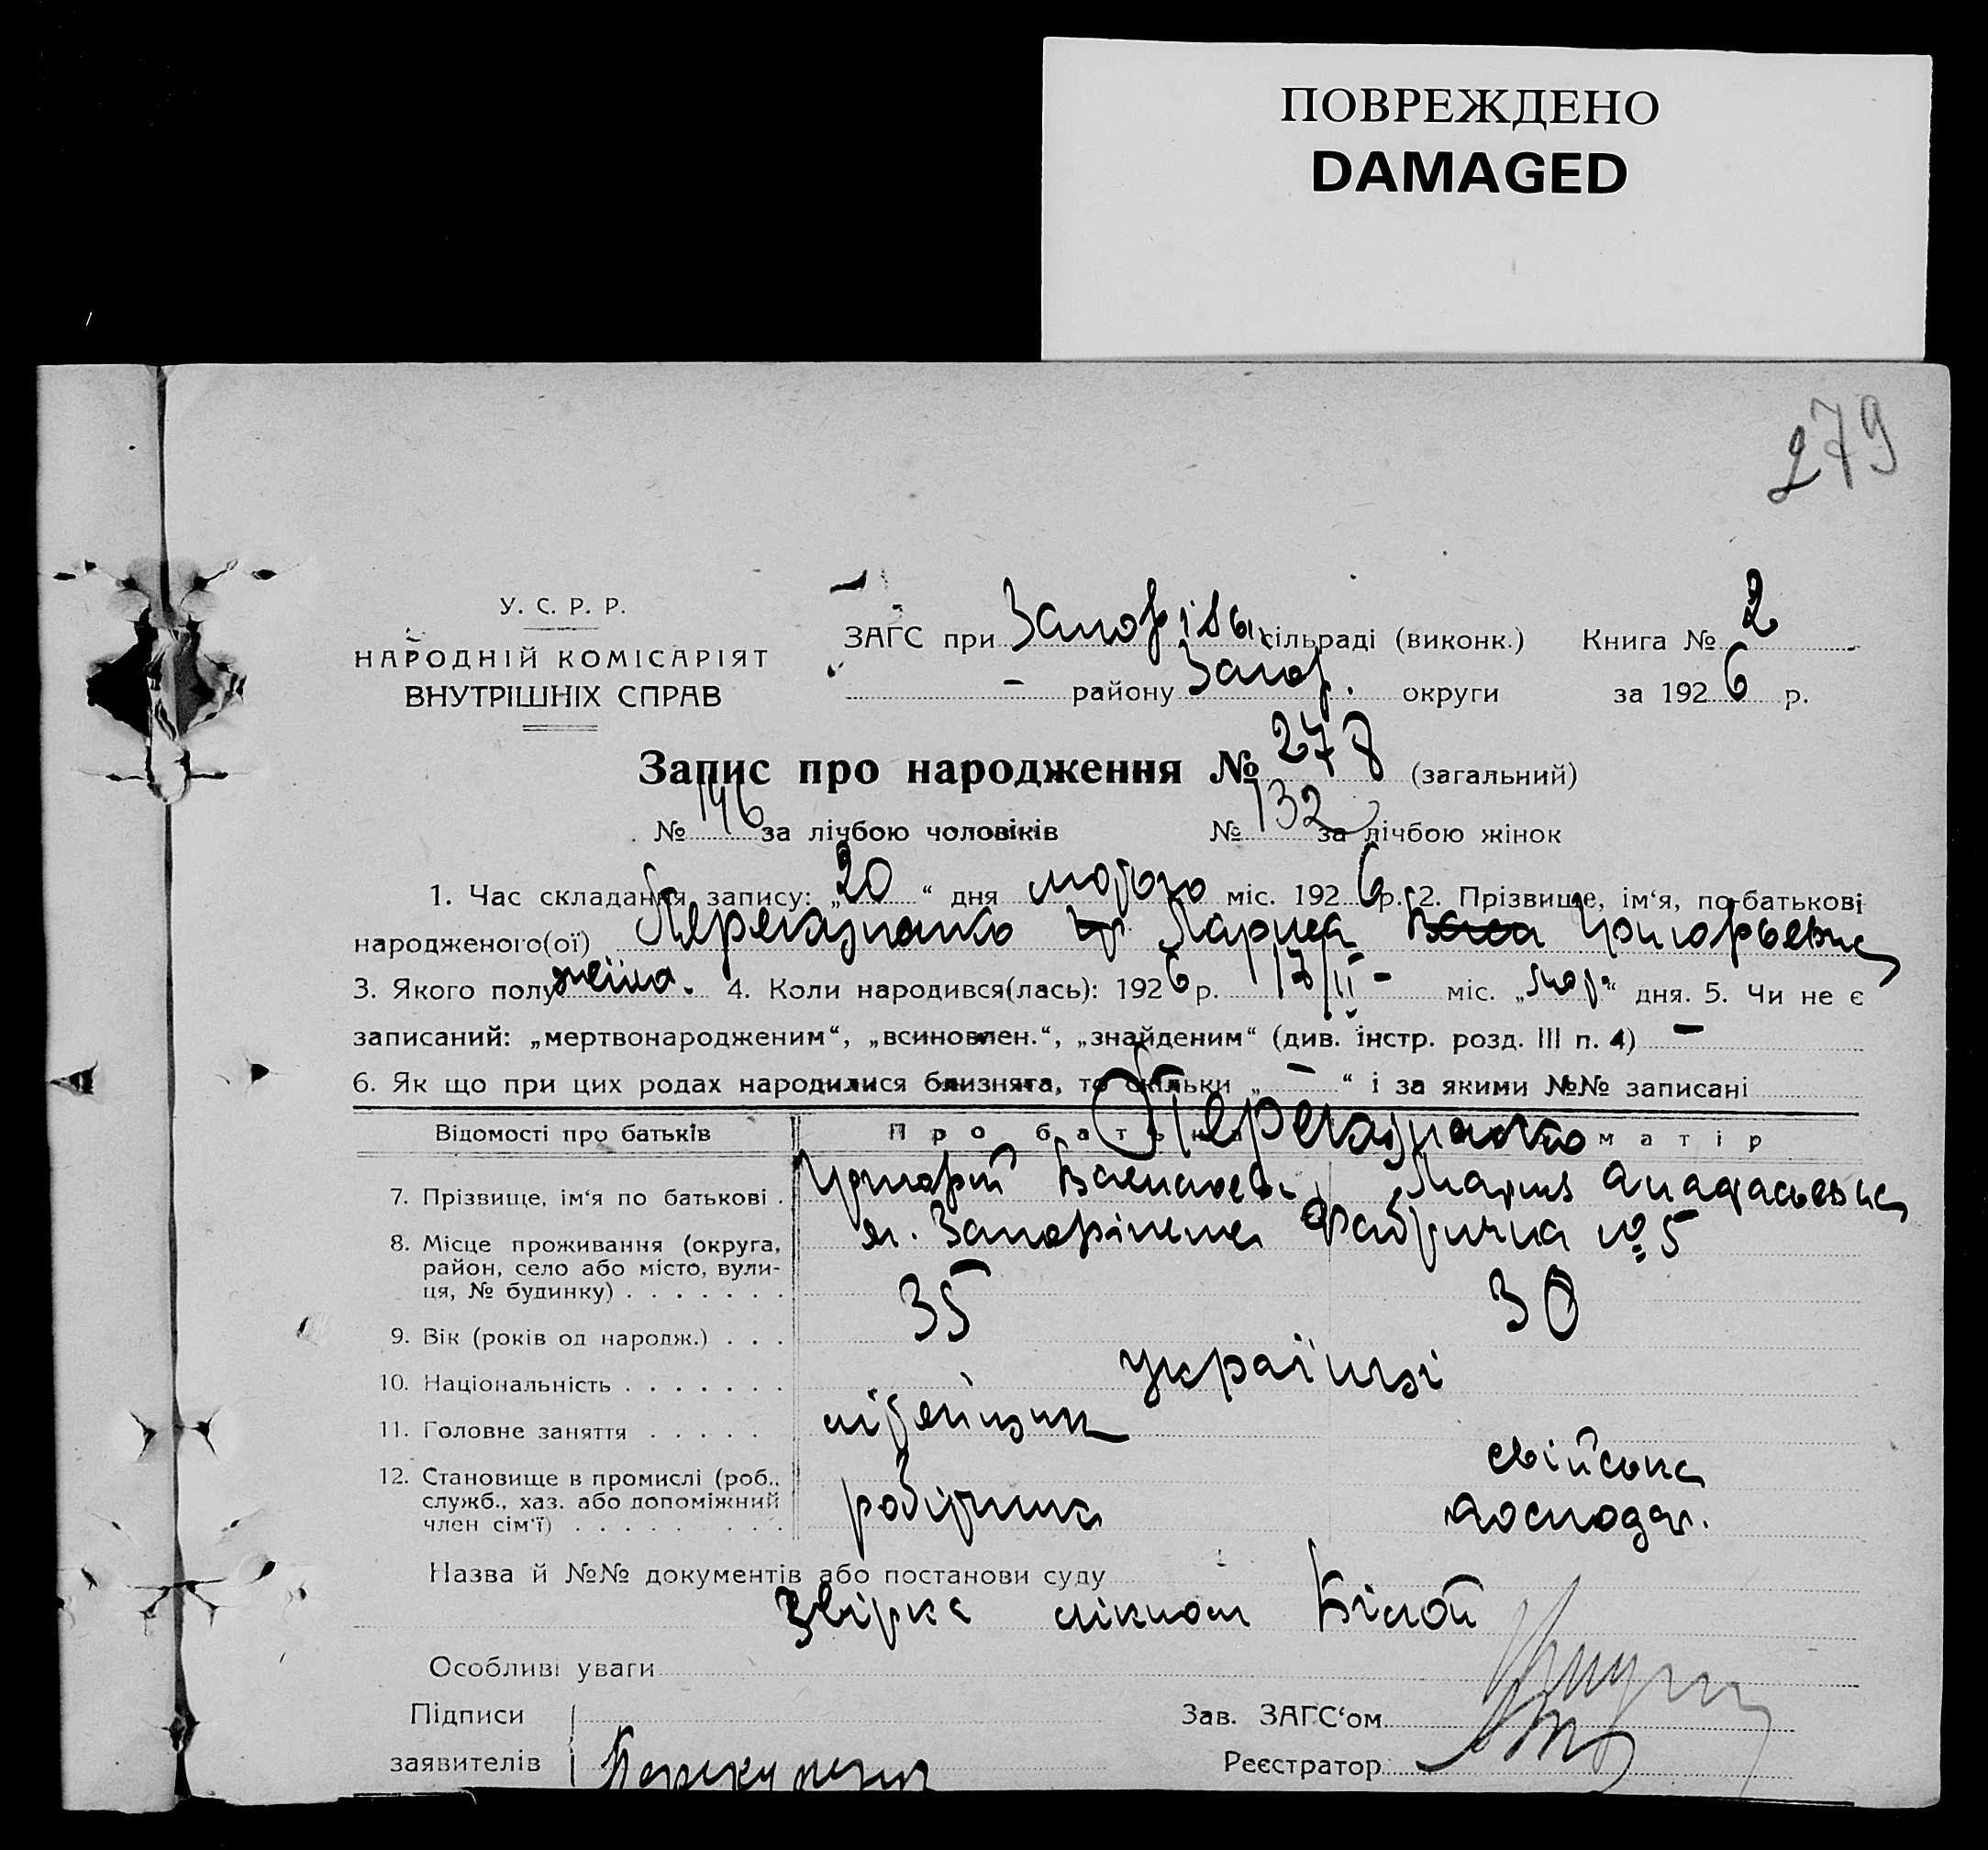 ПОВРЕЖДЕНО
DAMAGED
279
У. С. Р. Р.
НАРОДНІЙ КОМІСАРІЯТ
ВНУТРІШНІХ СПРАВ
ЗАГС при сільраді (виконк.) Книга № 2
– району Запор. округи за 1926 р.
Запис про народження № 278 (загальний)
№ 146 за лічбою чоловіків № 132 за лічбою жінок
1. Час складання запису: „20“ дня лютого міс. 1926 р. 2. Прізвище, ім‘я, по-батькові
народженого(ої) Лариса
3. Якого полу 4. Коли народився(лась): 1926 р. 17/II – міс. „ “ дня. 5. Чи не є
записаний: „мертвонародженим“, „всиновлен.“, „знайденим“ (див. інстр. розд. III п. 4) –
6. Як що при цих родах народилися близнята, то скільки „–“ і за якими №№ записані
Відомості про батьків Про батька матір
7. Прізвище, ім‘я по батькові . Мария
8. Місце проживання (округа, район, село або місто, вули-ця, № будинку) . . . . . . . Фабрична № 5
9. Вік (років од народж.) . . . 35 30
10. Національність . . . . . . . українці
11. Головне заняття . . . . .
12. Становище в промислі (роб., служб., хаз. або допоміжний член сім‘ї) . . . . . . . . . робітник свійська господар.
Назва й №№ документів або постанови суду
Особливі уваги
Підписи Зав. ЗАГС‘ом
заявителів Реєстратор